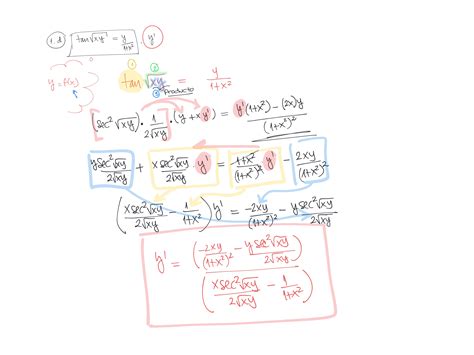 1. d tan√xy = y/(1+x²) y'
y = f(x)
tan√xy = y/(1+x²)
Producto
(sec²√xy) · 1/(2√xy) · (y + xy') = (y'(1+x²) - (2x)y)/(1+x²)²
(y sec²√xy)/(2√xy) + (x sec²√xy)/(2√xy) y' = (1+x²)/(1+x²)² y' - 2xy/(1+x²)²
((x sec²√xy)/(2√xy) - 1/(1+x²)) y' = -2xy/(1+x²)² - (y sec²√xy)/(2√xy)
y' = (-2xy/(1+x²)² - (y sec²√xy)/(2√xy)) / ((x sec²√xy)/(2√xy) - 1/(1+x²))